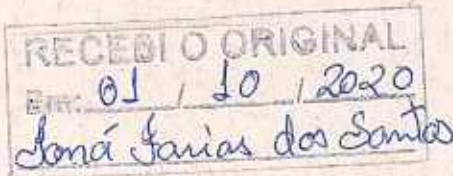 RECEBI O ORIGINAL
Em: 01 / 10 / 2020
Ioná Farias dos Santos